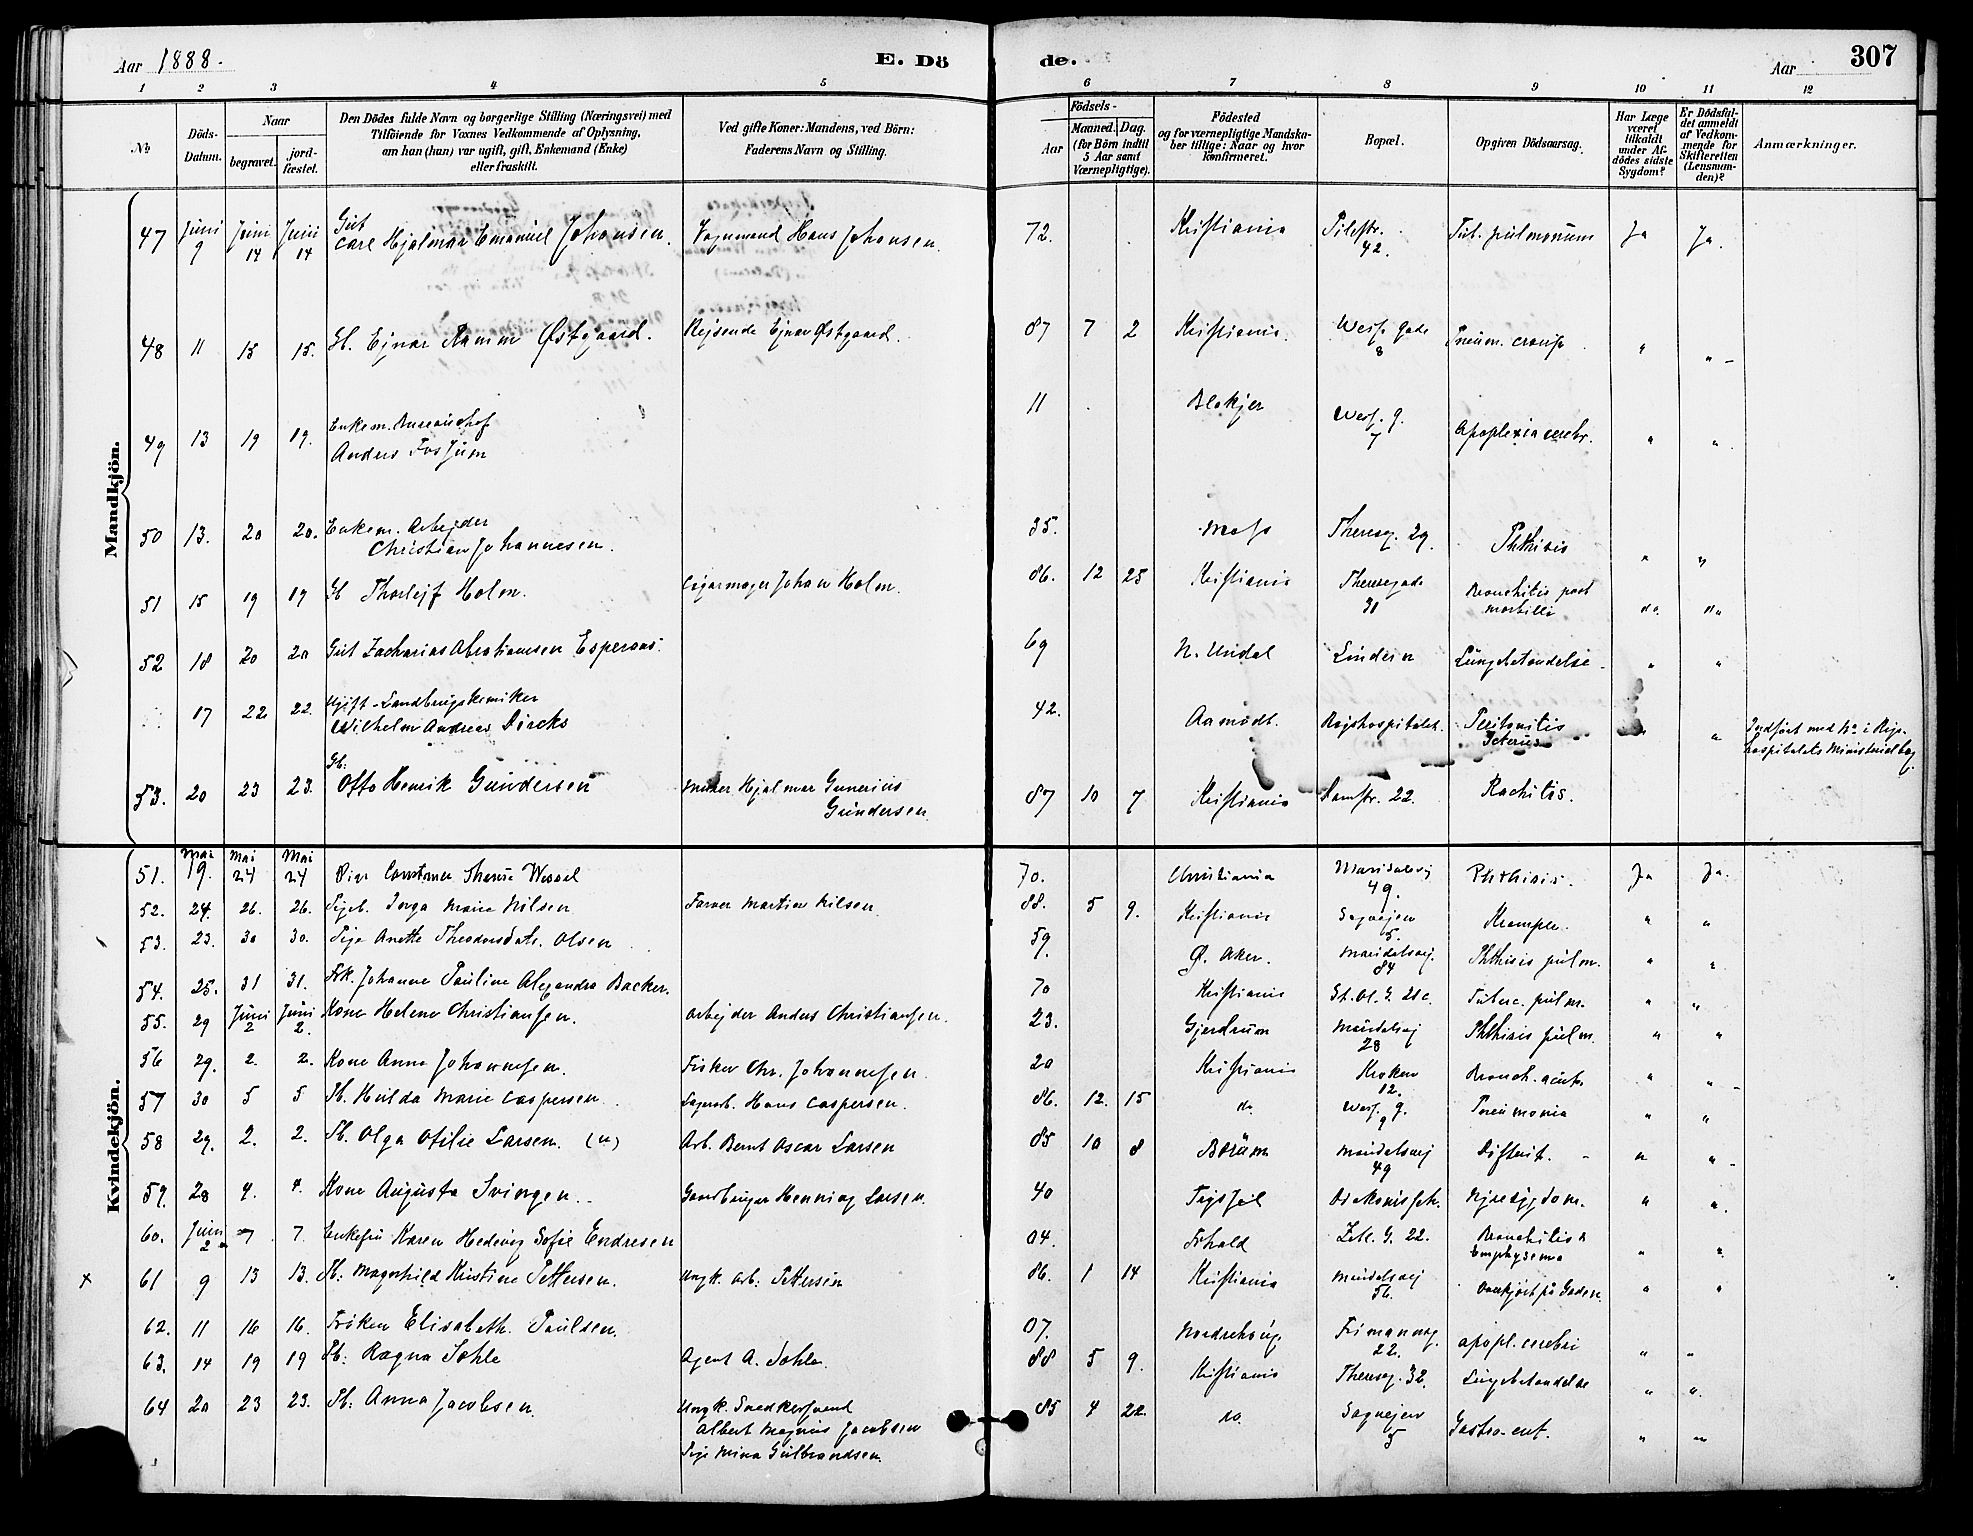 Aar 1888. E. Döde. Aar 307
1 2 3 4 5 6 7 8 9 10 11 12
No
Döds-Datum.
Naar
begravet.
jordfæstet.
Den Dödes fulde Navn og borgerlige Stilling (Næringsvei) med
Tilföiende for Voxnes Vedkommende af Oplysning,
om han (hun) var ugift, gift, Enkemand (Enke)
eller fraskilt.
Ved gifte Koner: Mandens, ved Börn:
Faderens Navn og Stilling.
Födsels-
Aar
Maaned. Dag.
(for Börn indtil
5 Aar samt
Værnepligtige).
Födested
og for værnepligtige Mandskaber tillige: Naar og hvor
konfirmeret.
Bopæl.
Opgiven Dödsaarsag.
Har Læge
været
tilkaldt
under Afdödes sidste
Sygdom?
Er Dödsfaldet anmeldt
af Vedkommende for
Skifteretten
(Lensmanden)?
Anmærkninger.
Mandkjön.
47 Juni 9 Juni 14 Juni 14 Gut Carl Hjalmar Emanuel Johansen. Vognmand Hans Johansen. 72. Kristiania Pilestr. 42. Tub. pulmonum Ja Ja.
48 11 15 15. Ejnar Ramm Østgaard. Rejsende Ejnar Østgaard. 87 7 2 Kristiania. Wess. Gade 8 Pneum. croup. " "
49 13 19 19. Enkem. Anders Fossum 11 Blakjer Wess. g. 7 Apoplexia cerebr. " "
50 13. 20 20. Enkem. Arbejder Christian Johannesen. 35. Moss Theresg. 29. Phthisis " "
51 15 19 19 Thorlejf Holm. Cigarmager Johan Holm. 86. 12 25 Kristiania Theresegade 31 Bronchitis post morbilli do. do
52 18 20 20 Gut Zacharias Abrahamsen Esperaas. 69 N. Undal Lindern Lungebetændelse " "
17 22 22. Ugift - Landbrugskemiker Wilhelm Andreas Dircks 42. Aamodt. Rigshospitalet. Peritonitis Icterus " " Indført med No i Rigshospitalets Ministerialbog.
53. 20 23 23. Gb: Otto Henrik Gundersen Murer Hjalmar Gunerius Gundersen 87 10 7 Kristiania 22. Rachitis.
Kvindekjön.
51. Mai 19. Mai 24 Mai 24 Wessel 70. Christiania Maridalsvej 49. Phthisis. Ja Ja.
52. 24. 26. 26. Pigeb. Inga Marie Nilsen Farver Martin Nilsen 88. 5 9. Kristiania Sagvejen 5. Krampe. " "
53. 23. 30 30. Pige Anette Theodorsdatr. Olsen 59. Ø. Aker. Maridalsvej. 84 Phthisis pulm. " "
54. 25. 31 31. Frk. Johanne Pauline Alexandra Backer. 70 Kristiania St. Ol. G. 21c. Tuberc. pulm. " "
55. 29 Juni 2 Juni 2. Kone Helene Christiansen. Arbejder Anders Christiansen. 23. Gjerdrum Maridalsvej 28 Phthisis pulm. " "
56 29. 2. 2. Kone Anne Johannesen. Fisker Chr. Johannesen. 20 Kristiania Kroken 12. Bronch. acut. " "
57 30 5 5 Pb. Hulda Marie Caspersen. Sagarb. Hans Caspersen. 86. 12. 15 do Wess. g. 9 Pneumonia " "
58 29. 2. 2. Pb. Olga Otilie Larsen. (u) Arb. Bernt Oscar Larsen 85 10 8 Bærum Maridalsvej 49 Difterit. " "
59. 28 4. 4. Kone Augusta Svingen. Gaardbruger Henning Larsen. 40 Trysil Diakonissehj. Nyresygdom. " "
60. Juni 2 7 7 Enkefru Karen Hedevig Sofie Endresen 04. Frhald G. 22. Bronchitis & Emphysema " "
x 61 9 13 13. Pb: Magnhild Kristine Pettersen. Ungk. Arb. Pettersen 86. 1 14 Kristiania Maridalsvej 56. Overkjört på Gaden. " "
62. 11 16 16. Frøken Elisabeth Paulsen 07. Norderhoug. Frimannsg. 22. apopl. cerebri
63. 14 19 19 Pb: Ragna Søhle Agent A. Søhle. 88 5 9. Kristiania Theresg. 32. Lungebetændelse " "
64 20 23 23. Pb: Anna Jacobsen. Ungk. Snedkersvend Albert Magnus Jacobsen Pige Mina Gulbrandsen. 85 4 22. do. Sagvejen 5 Gastro-ent. " "